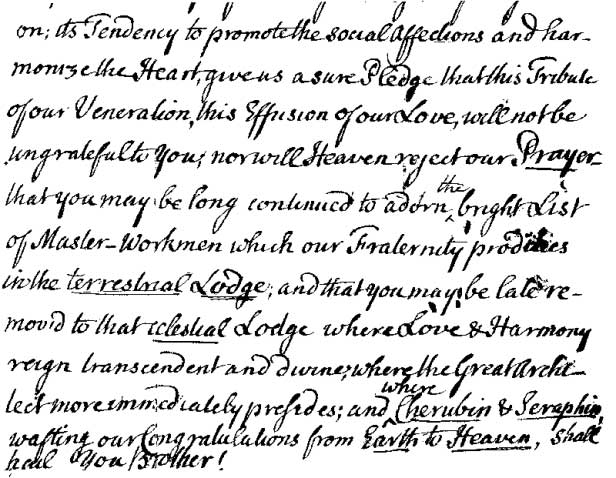 on; its Tendency to promote the social Affections and har-
monize the Heart, give us a sure Pledge that this Tribute
of our Veneration, this Effusion of our Love, will not be
ungrateful to You; nor will Heaven reject our Prayer
that you may be long continued to adorn the bright List
of Master-Workmen which our Fraternity produces
in the terrestrial Lodge; and that you may be late re-
mov'd to that celestial Lodge where Love & Harmony
reign transcendent and divine; where the Great Archi-
tect more immediately presides; and where Cherubin & Seraphin,
wafting our Congratulations from Earth to Heaven, shall
hail You Brother!